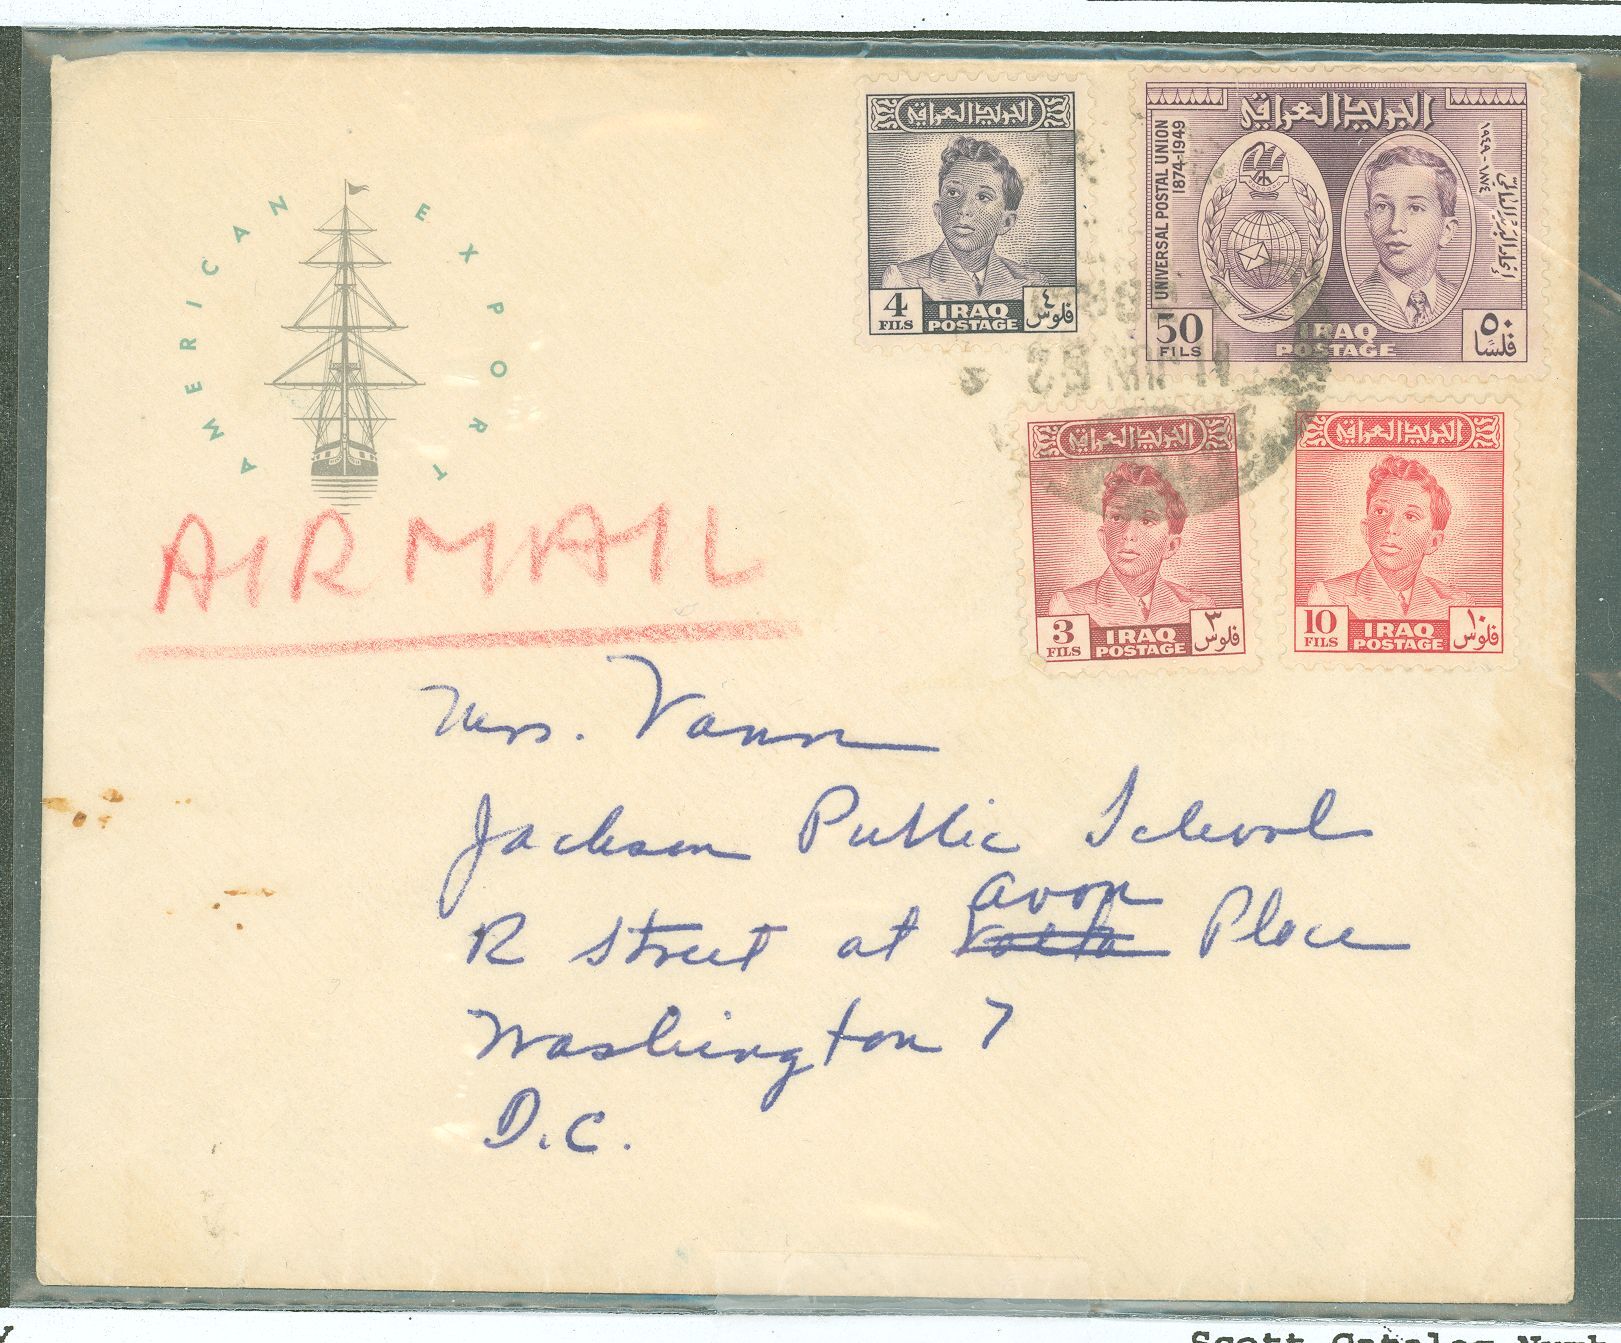 AMERICAN EXPORT
البريد العراقي
4
FILS
IRAQ
POSTAGE
٤
فلوس
البريد العراقي
UNIVERSAL POSTAL UNION
1874-1949
١٨٧٤-١٩٤٩
50
FILS
IRAQ
POSTAGE
٥٠
فلسا
البريد العراقي
3
FILS
IRAQ
POSTAGE
٣
فلوس
البريد العراقي
10
FILS
IRAQ
POSTAGE
١٠
فلوس
AIRMAIL
Mrs. Vann
Jackson Public School
R Street at Avon Place
Washington 7
D.C.
Scott Catalog